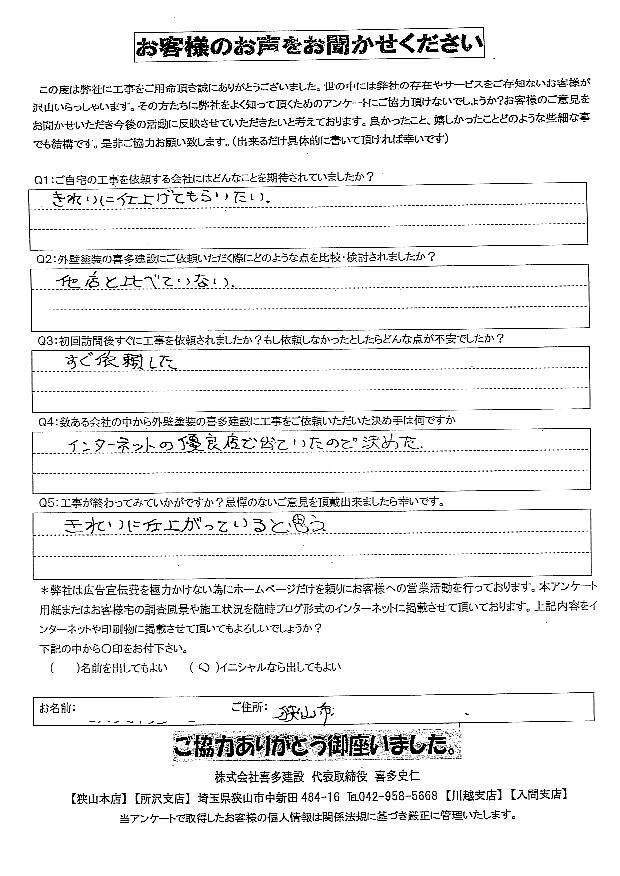 お客様のお声をお聞かせください
この度は弊社に工事をご用命頂き誠にありがとうございました。世の中には弊社の存在やサービスをご存知ないお客様が
沢山いらっしゃいます。その方たちに弊社をよく知って頂くためのアンケートにご協力頂けないでしょうか？お客様のご意見を
お聞かせいただき今後の活動に反映させていただきたいと考えております。良かったこと、嬉しかったことどのような些細な事
でも結構です。是非ご協力お願い致します。（出来るだけ具体的に書いて頂ければ幸いです）
Q1：ご自宅の工事を依頼する会社にはどんなことを期待されていましたか？
きれいに仕上げてもらいたい。
Q2：外壁塗装の喜多建設にご依頼いただく際にどのような点を比較・検討されましたか？
他店と比べていない。
Q3：初回訪問後すぐに工事を依頼されましたか？もし依頼しなかったとしたらどんな点が不安でしたか？
すぐ依頼した
Q4：数ある会社の中から外壁塗装の喜多建設に工事をご依頼いただいた決め手は何ですか
インターネットの優良店で出ていたので決めた。
Q5：工事が終わってみていかがですか？忌憚のないご意見を頂戴出来ましたら幸いです。
きれいに仕上がっていると思う
＊弊社は広告宣伝費を極力かけない為にホームページだけを頼りにお客様への営業活動を行っております。本アンケート
用紙またはお客様宅の調査風景や施工状況を随時ブログ形式のインターネットに掲載させて頂いております。上記内容をイ
ンターネットや印刷物に掲載させて頂いてもよろしいでしょうか？
下記の中から〇印をお付下さい。
（　）名前を出してもよい　（〇）イニシャルなら出してもよい
お名前：　ご住所：　狭山市
ご協力ありがとう御座いました。
株式会社喜多建設　代表取締役　喜多史仁
【狭山本店】【所沢支店】　埼玉県狭山市中新田 484-16　℡042-958-5668　【川越支店】【入間支店】
当アンケートで取得したお客様の個人情報は関係法規に基づき厳正に管理いたします。